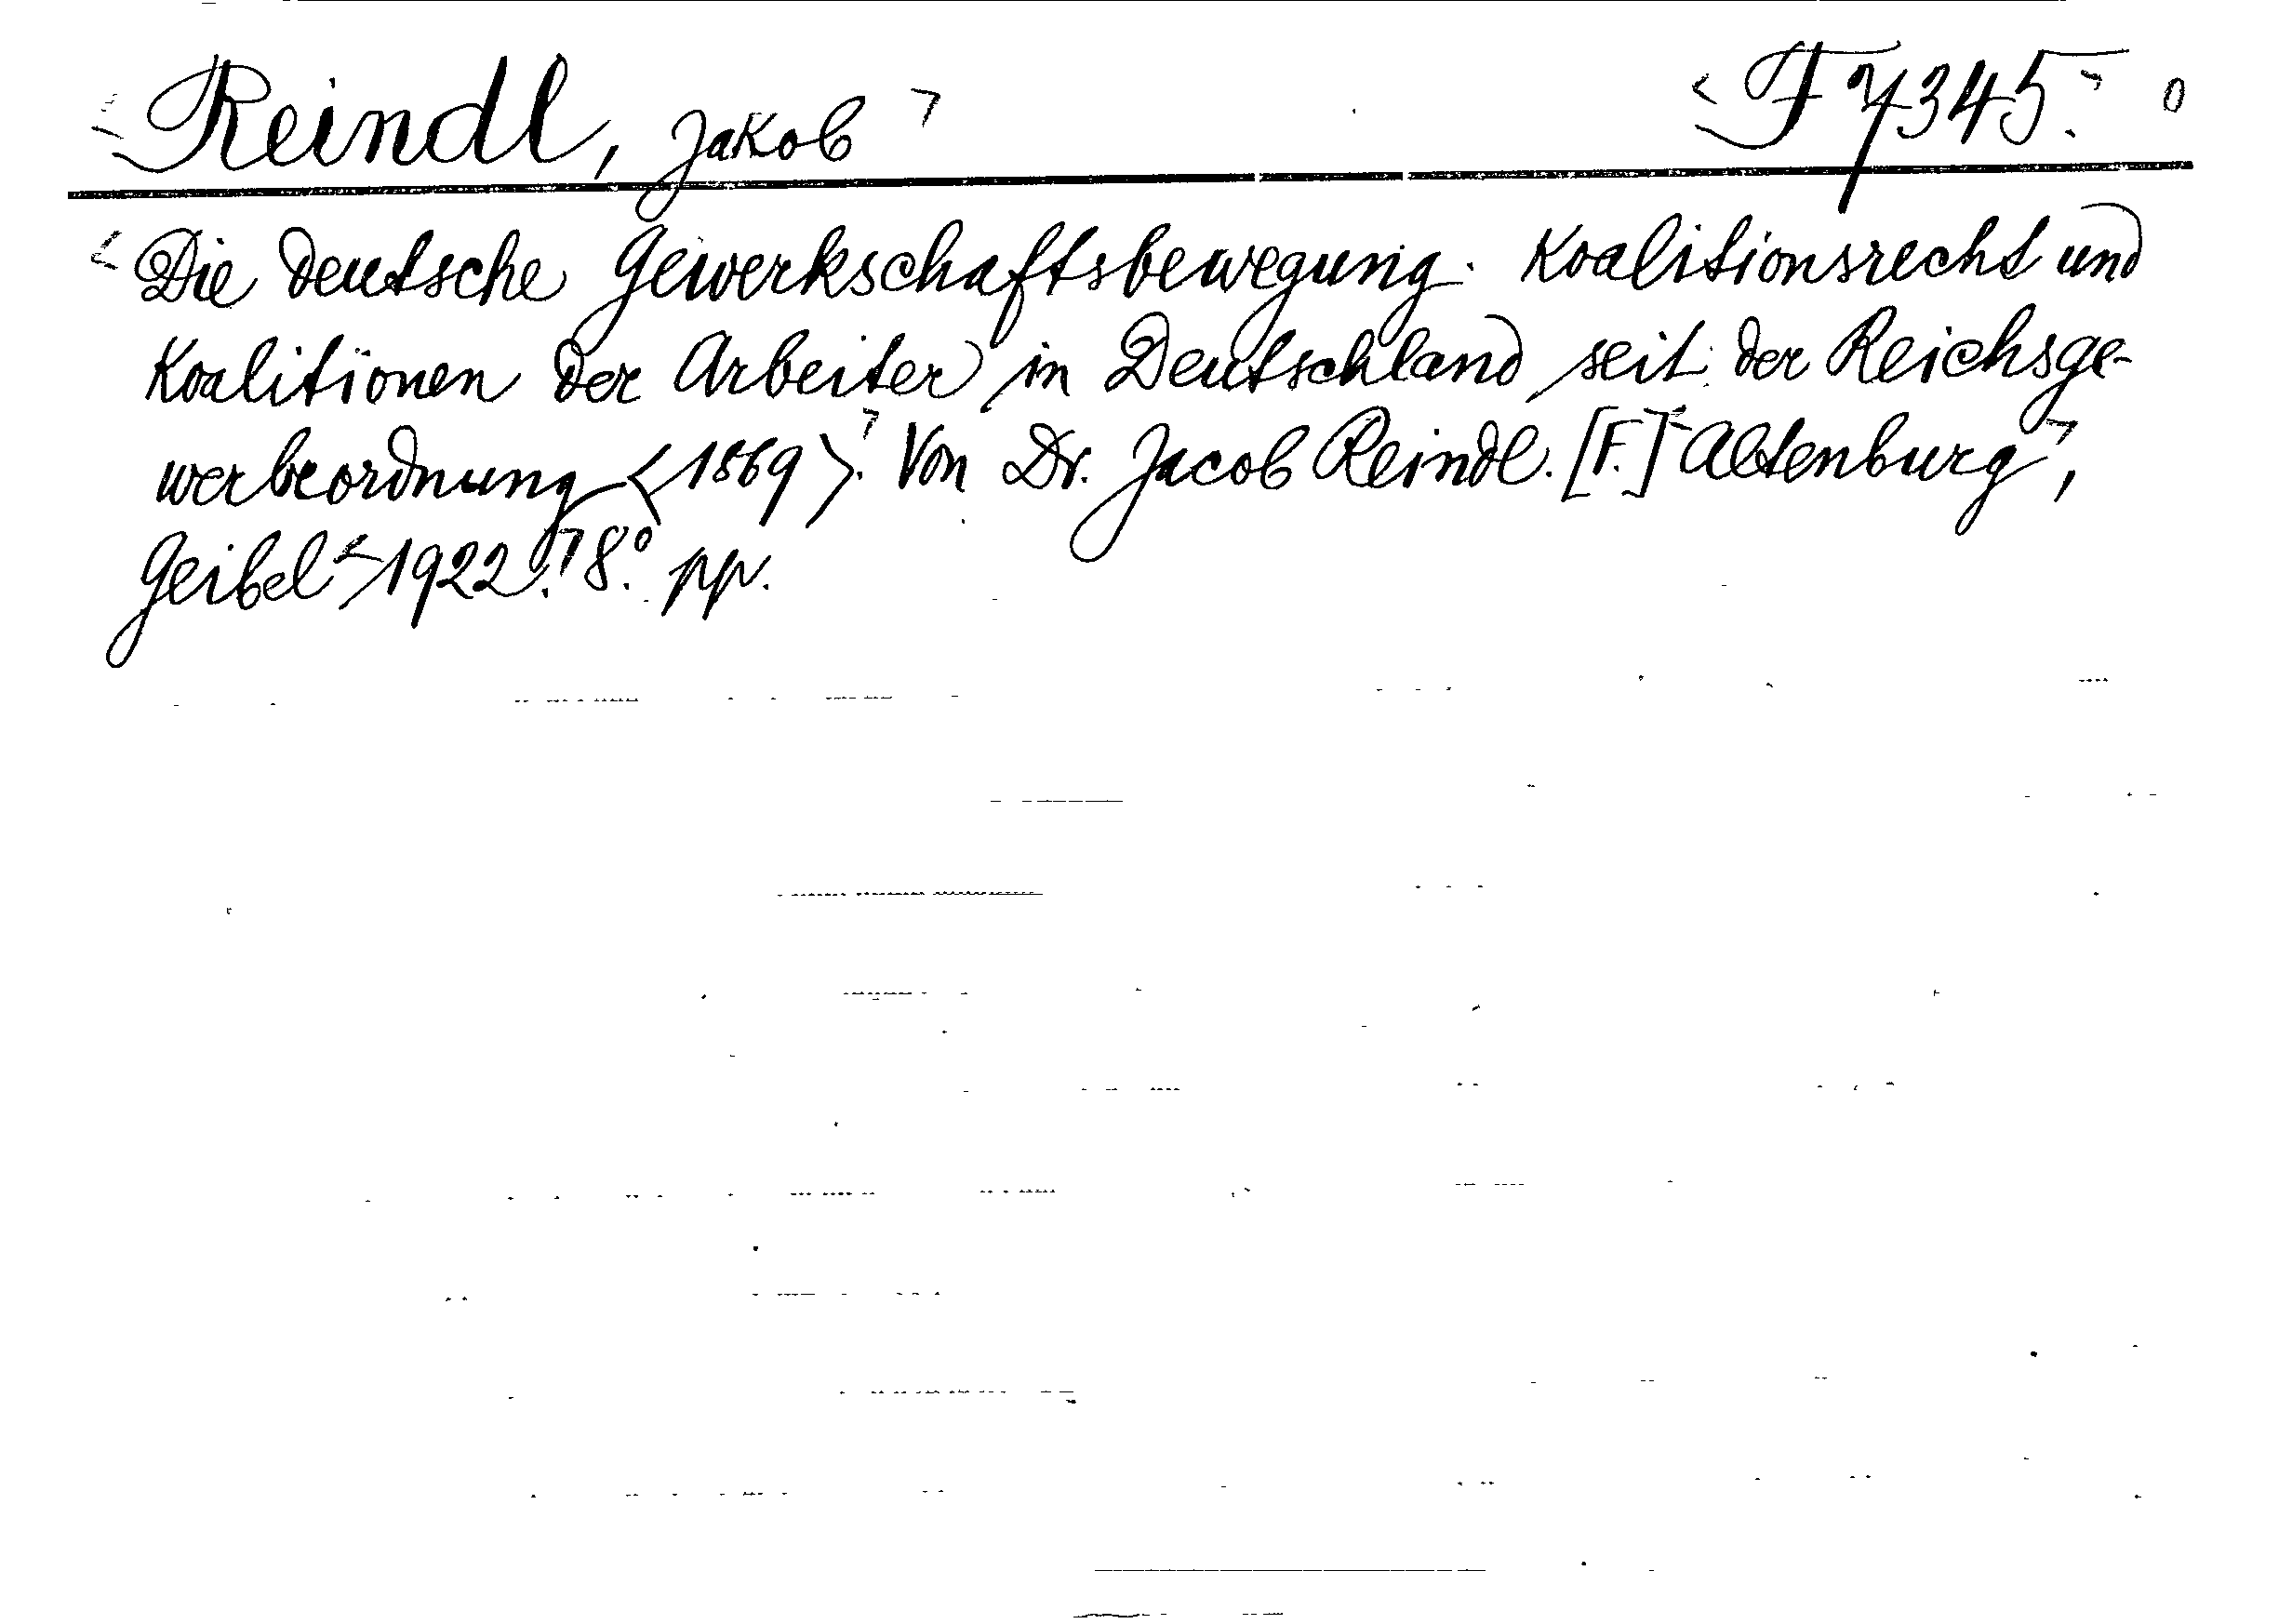 Reindl, Jakob F 7345. 0
Die deutsche Gewerkschaftsbewegung. Koalitionsrecht und
Koalitionen der Arbeiter in Deutschland seit der Reichsge-
werbeordnung <1869>. Von Dr. Jacob Reindl. [F.] Altenburg,
Geibel 1922. 8.° pp.